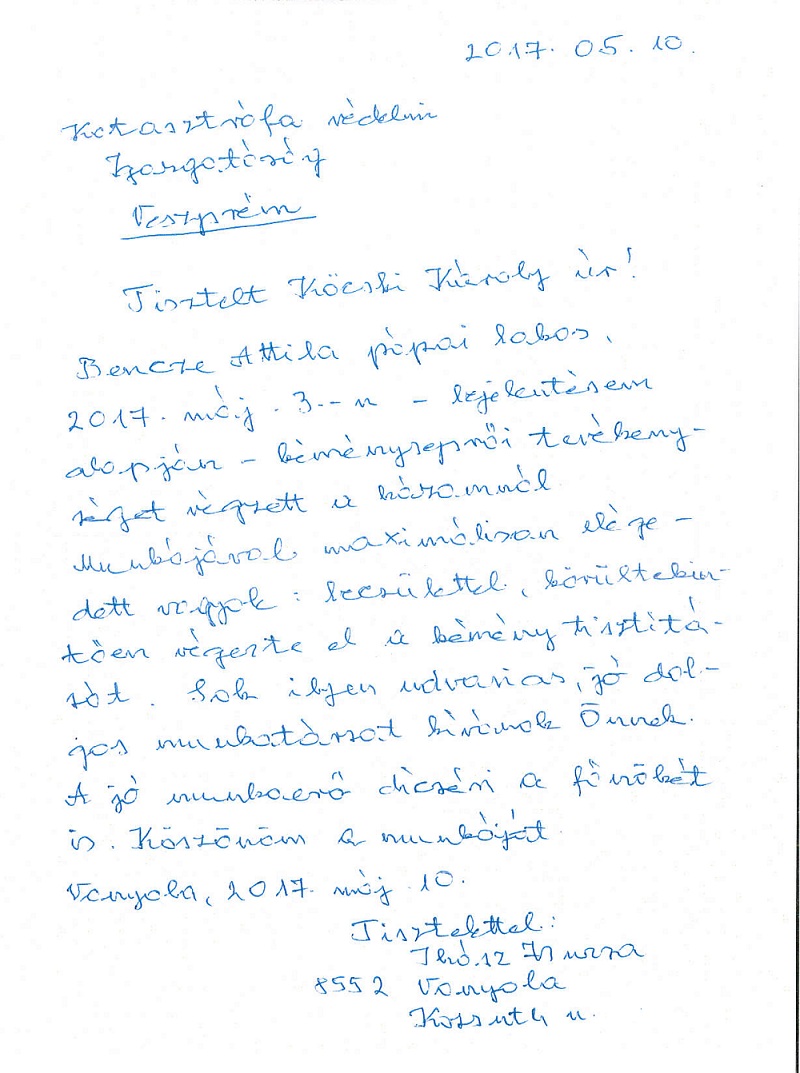 2017. 05. 10.
Katasztrófa védelmi
Igazgatóság
Veszprém
Tisztelt Köcski Károly úr!
Bencze Attila pápai lakos,
2017. máj. 3.-n - bejelentésem
alapján - kéményseprői tevékeny-
séget végzett a házamnál
Munkájával maximálisan elége-
dett vagyok: becsülettel, körültekin-
tően végezte el a kémény tisztítá-
sát. Sok ilyen udvarias, jó dol-
gos munkatársat kívánok Önnek.
A jó munkaerő dicséri a főnökét
is. Köszönöm a munkáját.
Vanyola, 2017. máj 10.
Tisztelettel:
8552 Vanyola
Kossuth u.